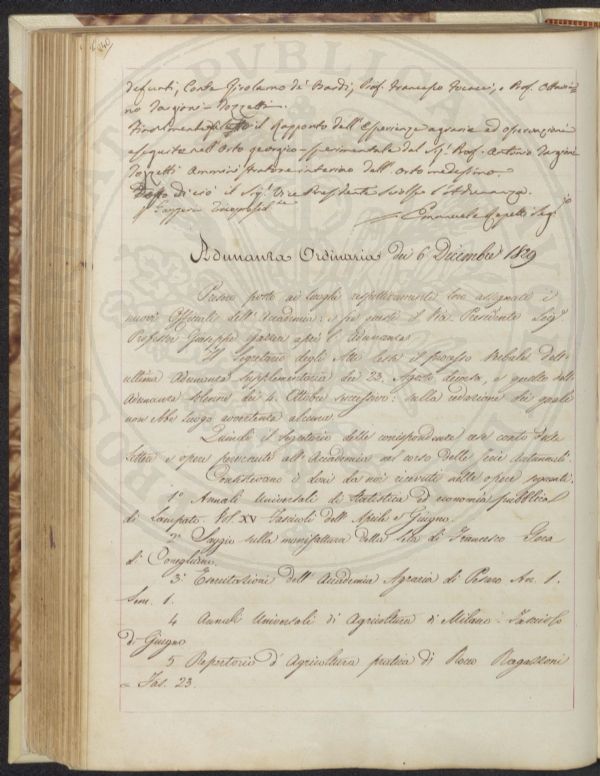 defunti, Conte Girolamo de' Bardi, Prof. Francesco Focacci, e Prof. Ottavia=
no Targioni-Tozzetti.
Finalmente il Rapporto dell'Esperienze agrarie ed operazioni
eseguite nell'Orto georgico-sperimentale dal Sig.r Prof. Antonio Targioni
Tozzetti Amministratore interino dell'Orto medesimo.
Dopo di ciò il Sig.r Vice Presidente sciolse l'Adunanza.
Emanuele Repetti Seg.rio
Adunanza Ordinaria dei 6 Dicembre 1829
Preso posto ai luoghi respettivamente loro assegnati i
nuovi Officiali dell'Accademia, e il Vice Presidente Sig.
Professore Giuseppe Gazzeri aprì l'Adunanza.
Il Segretario degli Atti lesse il processo verbale dell'
ultima Adunanza Supplementaria dei 23. Agosto decorso, e quello dell'
Adunanza solenne dei 4. Ottobre successivo: sulla redazione dei quali
non ebbe luogo avvertenza alcuna.
Quindi il Segretario delle corrispondenze rese conto delle
lettere e opere pervenute all'Accademia nel corso delle ferie autunnali.
Consistevano i doni da noi ricevuti nelle opere seguenti.
1° Annali Universali di Statistica ed economia pubblica
di Lampato. Vol. XV Fascicoli dell'Aprile e Giugno.
2° Saggio sulla manifattura della Seta di Francesco Gera
di Conegliano.
3° Esercitazioni dell'Accademia Agraria di Pesaro An. 1.
Sem. 1.
4 Annali Universali di Agricoltura di Milano. Fascicolo
di Giugno
5 Repertorio d'Agricoltura pratica di Rocco Ragazzoni
= Fas. 23.